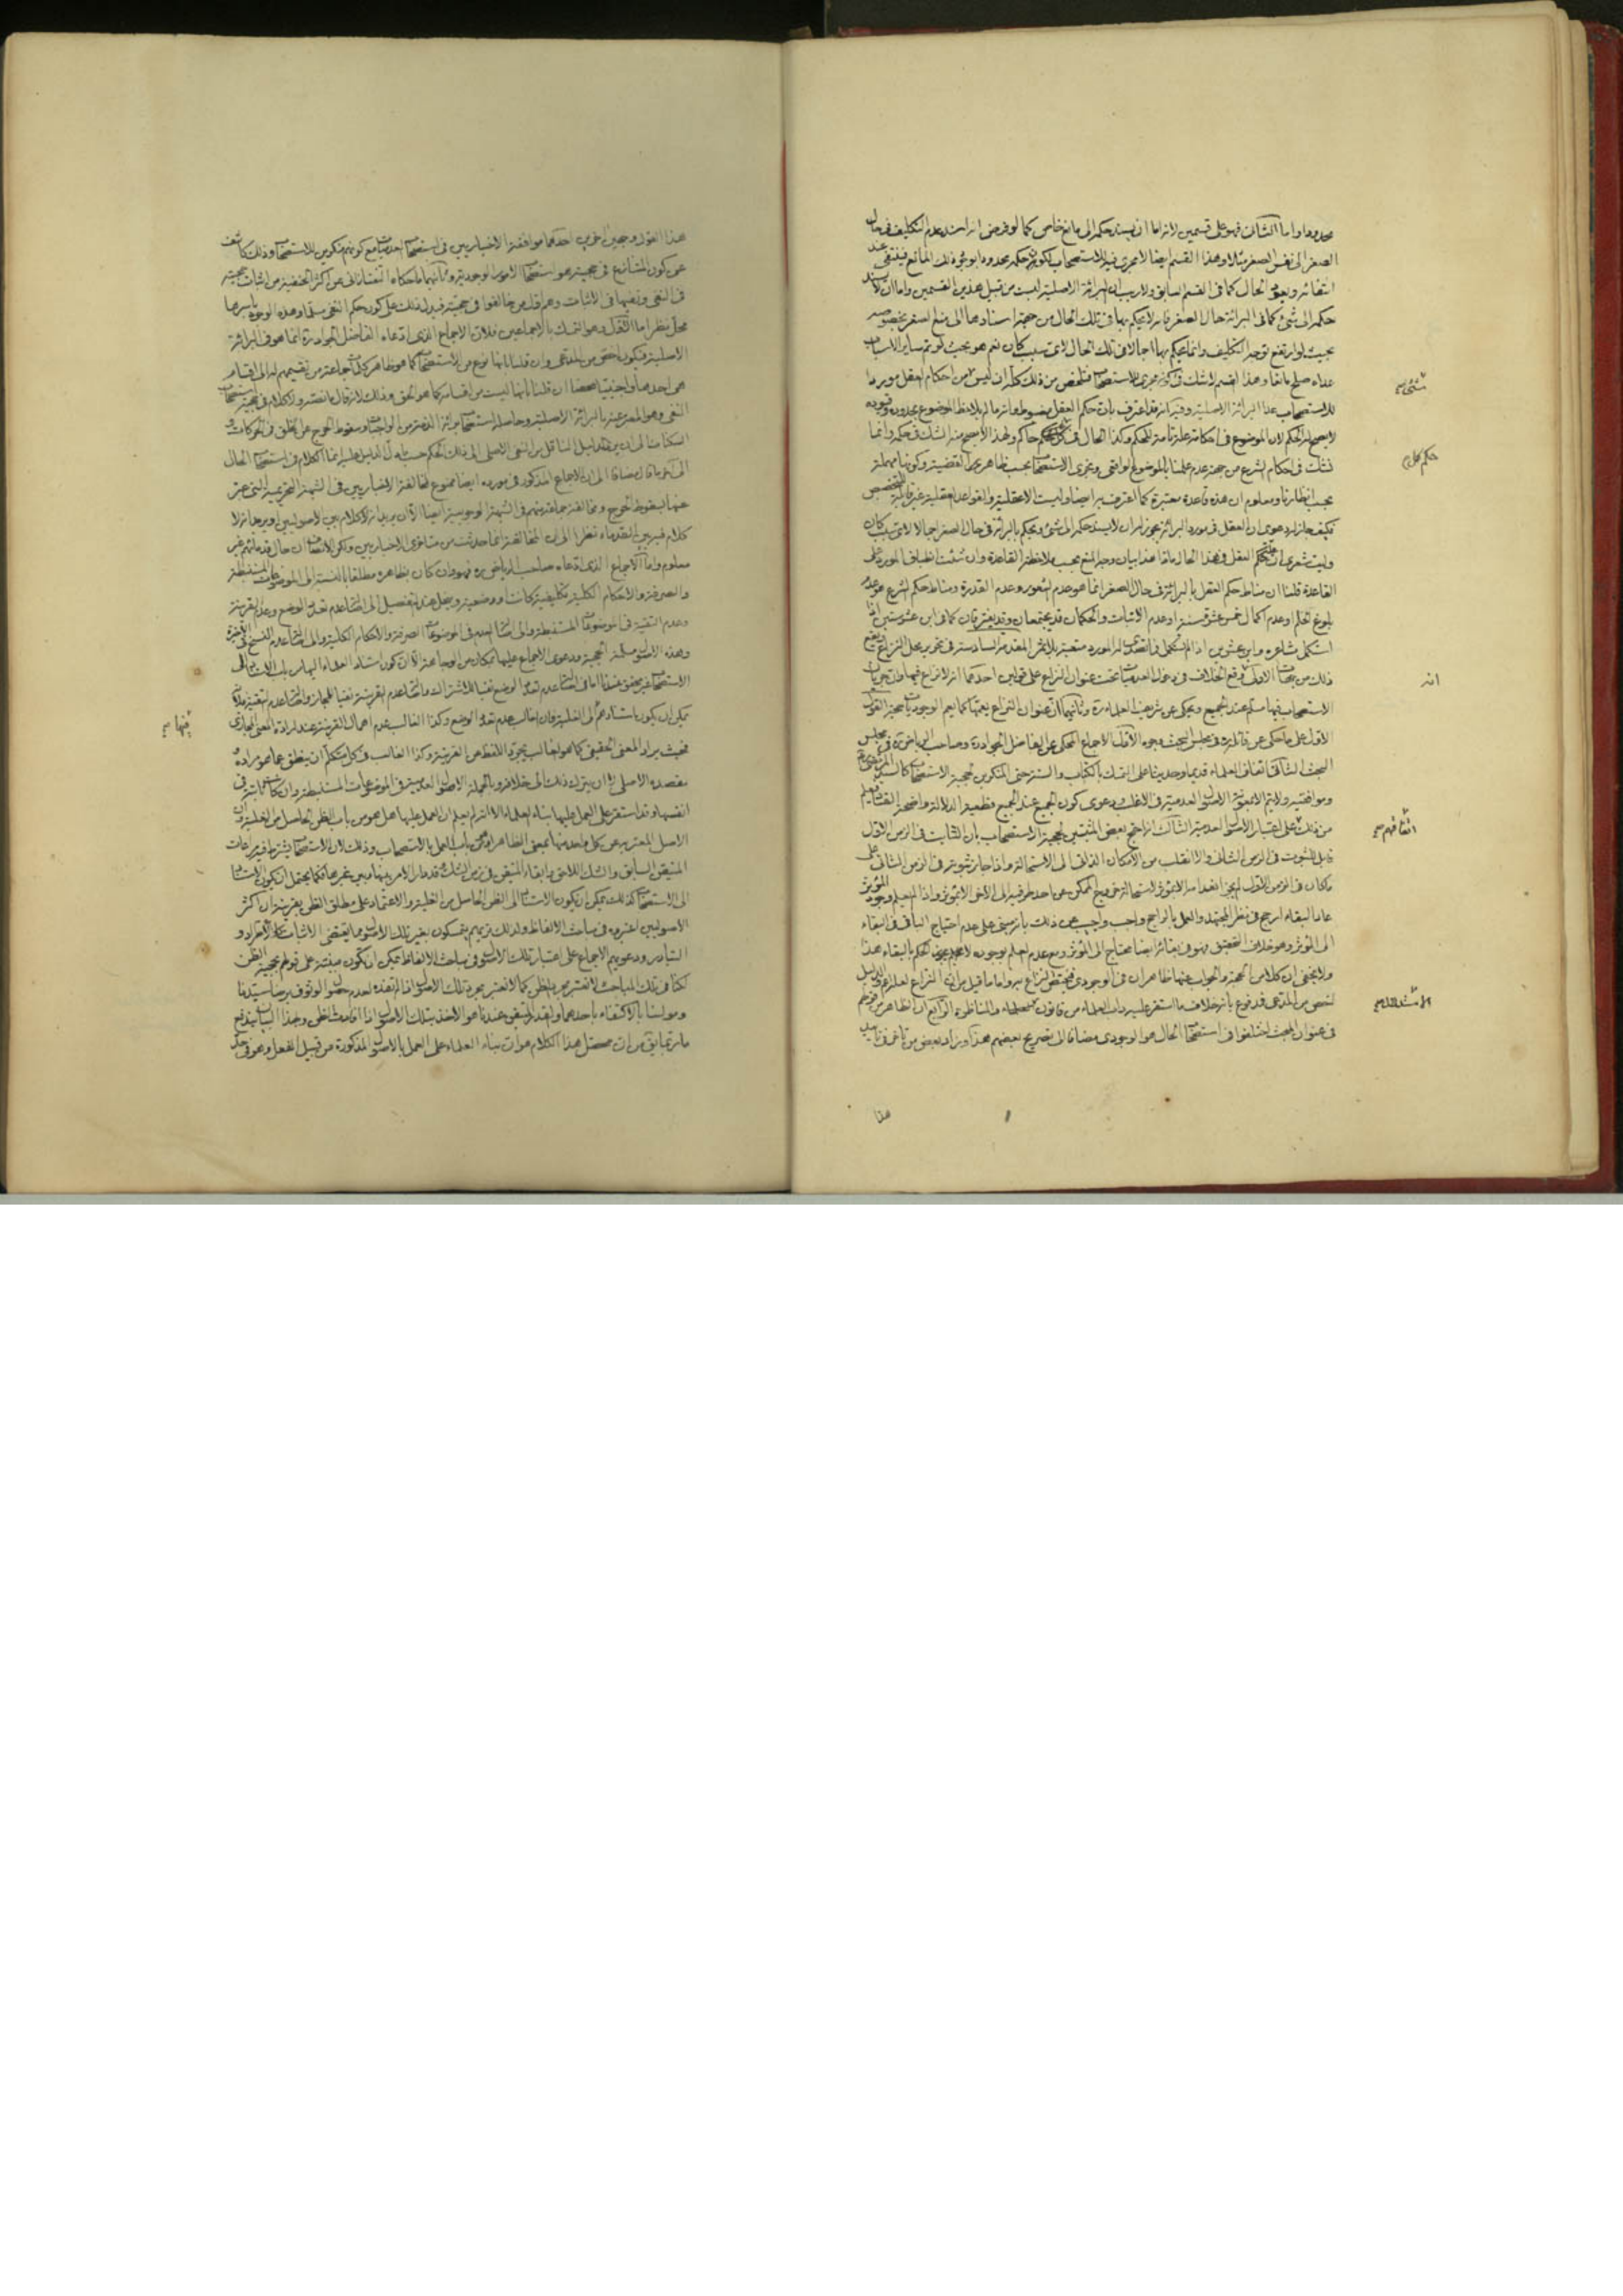 محدودا واما الثالث فهو على قسمين لانه اما ان يستند حكمه الى مانع خاص كما لو فرض انه استند عدم التكليف في حال
الصغر الى نفس الصغر مثلا وهذا القسم ايضا لا يجرى فيه الاستصحاب لكون حكمه محدودا بوجود ذلك المانع فينتفى عند
انتفائه ويعرف الحال كما في القسم السابق ولا ريب ان البرائة الاصلية ليست من قبيل هذين القسمين واما ان لا يستند
حكمه الى شئ كما في البرائة حال الصغر فانه لا يحكم بها في تلك الحال من جهة اسنادها الى منع الصغر بخصوصه
بحيث لو ارتفع توجه التكليف وانما يحكم بها اجمالا في تلك الحال لاى سبب كان نعم هو بحيث لو تم ساير الاسباب
عداه صلح مانعا وهذا القسم لا شك في كونه مجرى للاستصحاب فتلخص من ذلك كله ان ليس من احكام العقل موردا
للاستصحاب عدا البرائة الاصلية وفيه انه قد اعترف بان حكم العقل مضبوط وانه ما لم يلاحظ الموضوع بحدوده وقيوده
لا يصح له الحكم لان الموضوع في احكامه علة تامة للحكم وكذا الحال في كل حاكم ولهذا لا يصح منه الشك في حكمه وانما
نشك في احكام الشرع من جهة عدم علمنا بالموضوع الواقعى ويجرى الاستصحاب بحسب ظاهر القضية وكونها مهملة
بحسب انظارنا ومعلوم ان هذه قاعدة معتبرة كما اعترف به ايضا وليست الا عقلية والقواعد العقلية غير قابلة للتخصيص
فكيف جاز له دعوى ان العقل في مورد البرائة يجوز له ان لا يستند حكمه الى شئ ويحكم بالبرائة في حال الصغر اجمالا لاى سبب كان
وليت شعرى ان حكم العقل في هذا الحال ماذا هذا بيان وجه المنع بحسب ملاحظة القاعدة وان شئت انطباق المورد على
القاعدة قلنا ان مناط حكم العقل بالبرائة في حال الصغر انما هو عدم الشعور وعدم القدرة ومناط حكم الشرع هو عدم
بلوغ الحلم وعدم اكمال خمس عشرة سنة او عدم الانبات والحكمان قد يجتمعان وقد يفترقان كما في ابن عشر سنين اذا
استكمل مشاعره وابن عشرين اذا لم يستكمل
ذلك من جهات الاولى وقع الخلاف في دخول العدميات تحت عنوان النزاع على قولين احدهما انه لا نزاع فيها وان جريان
الاستصحاب فيها مسلم عند الجميع ويحكى عن شريف العلماء ره وثانيهما ان عنوان النزاع يعمها كما يعم الوجوديات حجة القول
الاول على ما حكى عن قائله ره في مجلس البحث وجوه الاول الاجماع المحكى عن الفاضل الجواد ره وصاحب الرياض ره في مجلس
البحث الثانى اتفاق العلماء قديما وحديثا على التمسك بالكتاب والسنة حتى المنكرين لحجية الاستصحاب كالسيد المرتضى ره
وموافقيه ولا يتم الا بمعونة الاصول العدمية في الاغلب ودعوى كون الجميع عند الجميع قطعية الدلالة واضحة الفساد فيعلم
من ذلك على اعتبار الاصول العدمية الثالث انه احتج بعض المثبتين لحجية الاستصحاب بان الثابت في الزمن الاول
قابل للثبوت في الزمن الثانى والا انقلب من الامكان الذاتى الى الاستحالة واذا جاز ثبوته في الزمن الثانى على
ما كان في الزمن الاول لم يجز انعدامه الا بمؤثر لاستحالة خروج الممكن عن احد طرفيه الى الاخر الا بمؤثر واذا لم يعلم وجود المؤثر
عاد البقاء ارجح في نظر المجتهد والعمل بالراجح واجب واجيب عن ذلك بانه مبنى على عدم احتياج الباقى في البقاء
الى المؤثر وهو خلاف التحقيق فهو في بقائه ايضا محتاج الى المؤثر ومع عدم العلم بوجوده لا يجوز الحكم بالبقاء هذا
ولا يخفى ان كلا من الحجة والجواب عنها ظاهران في الوجودى فيختص النزاع به واما ما قيل من ان النزاع
اخص من المدعى فمدفوع بانه خلاف ما استقر عليه داب العلماء من قانون المناظرة الرابع ان الظاهر من قولهم
في عنوان المبحث اختلفوا في استصحاب الحال هو الوجودى مضافا الى تصريح بعضهم هذا وزاد بعض من تاخر في تاييد
هذا
شئ صح
حكم كل صح
انه
اتفاقهم صح
هذا القول وجهين اخرين احدهما موافقة الاخباريين في استصحاب العدميات مع كونهم منكرين للاستصحاب وذلك كاشف
عن كون المتنازع في حجيته هو استصحاب الامور الوجودية وثانيهما ما حكاه التفتازانى عن اكثر الحنفية من اثبات حجيته
في النفى ونفيها في الاثبات وهم اول من خالفوا في حجيته فيدل ذلك على كون حكم النفى مسلما وهذه الوجوه باسرها
محل نظر اما الاول وهو التمسك بالاجماعين فلان الاجماع الذى ادعاه الفاضل الجواد ره انما هو في البرائة
الاصلية فيكون اخص من المدعى وان قلنا بانها نوع من الاستصحاب كما هو ظاهر كلمات جماعة من تقسيمهم له الى اقسام
هى احدها واجنبيا محضا ان قلنا بانها ليست من اقسامه كما هو الحق وذلك لانه قال ما نصه ولا كلام في حجية استصحاب
النفى وهو المعبر عنه بالبرائة الاصلية وحاصله استصحاب برائة الذمة من الواجبات وسقوط الحرج عن الخلق في الحركات و
السكنات الى ان يرد الدليل الناقل من النفى الاصلى الى ذلك الحكم حسب ما دل الدليل عليه انما الكلام في استصحاب الحال
الى اخره ما قال مضافا الى ان الاجماع المذكور في مورده ايضا ممنوع لمخالفة الاخباريين في الشبهة التحريمية التى عبر
عنها بسقوط الحرج ومخالفة جماعة منهم في الشبهة الوجوبية ايضا الا ان يريد انه لا كلام بين الاصوليين او يريد انه لا
كلام فيه بين القدماء نظرا الى ان المخالفة انما حدثت من متاخرى الاخباريين ولكن الانصاف ان حال قدمائهم غير
معلوم واما الاجماع الذى ادعاه صاحب الرياض ره فهو وان كان بظاهره مطلقا بالنسبة الى الموضوعات المستنبطة
والصرفة والاحكام الكلية تكليفية كانت او وضعية
وعدم النقيصة في الموضوعات المستنبطة والى اصالة العدم في الموضوعات الصرفة والاحكام الكلية والى اصالة عدم النسخ في الاخيرة
وهذه الاصول مسلمة الحجية ودعوى الاجماع عليها بمكان من الوجاهة الا ان كون استناد العلماء اليها من باب
يمكن ان يكون باستنادهم الى الغلبة فان الغالب عدم تعدد الوضع وكذا الغالب عدم اهمال القرينة عند ارادة المعنى المجازى
بحيث يراد المعنى الحقيقى كما هو الغالب بتجرد اللفظ عن القرينة وكذا الغالب في كل متكلم ان ينطق عما هو مراده و
مقصده الاصلى لا ان يترك ذلك الى خلافه وبالجملة الاصول العدمية في الموضوعات المستنبطة وان كانت ثابتة في
انفسها وقد استقر على العمل عليها بناء العلماء الا انه لم يعلم ان العمل عليها هل هو من باب الظن الحاصل من الغلبة وان
الاصل المعتبر به عن كل واحد منها بمعنى الظاهر او من باب العمل بالاستصحاب وذلك لان الاستصحاب يشترط فيه مراعات
المتيقن السابق والشك اللاحق وابقاء المتيقن في زمن الشك وقد دار الامر بينها وبين غيرها فكما يحتمل ان يكون الاستناد
الى الاستصحاب كذلك يمكن ان يكون الاستناد الى الظن الحاصل من الغلبة والاعتماد على مطلق الظن بقرينة ان اكثر
الاصوليين اعتبروه في مباحث الالفاظ ولذلك تريهم يتمسكون بغير تلك الاصول مما يقتضى الاثبات كالاطراد و
التبادر ودعويهم الاجماع على اعتبار تلك الاصول في مباحث الالفاظ يمكن ان تكون مبنية على قولهم بحجية الظن
لكنا في تلك المباحث لا نعتبر مجرد الظن كما لا نعتبر مجرد تلك الاصول اذا لم تفده لعدم حصول الوثوق به
ما ربما يق من ان محصل هذا الكلام هو ان بناء العلماء على العمل بالاصول المذكورة من قبيل الفعل وهو في حد
فيها صح